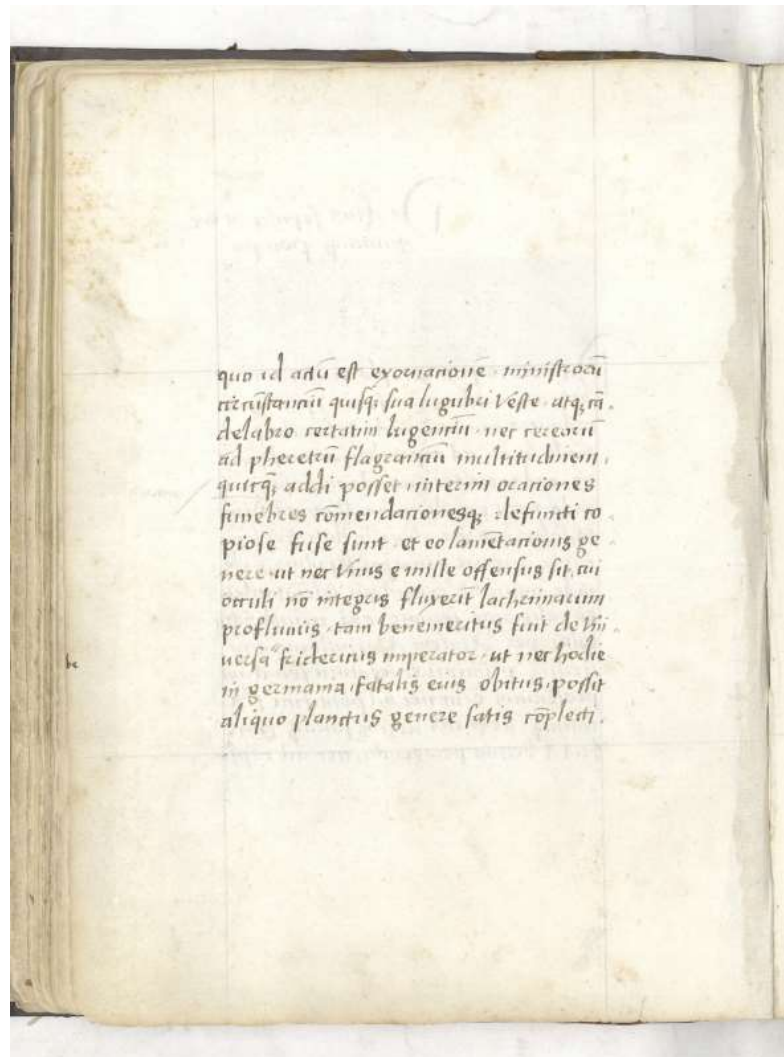 quo id actū est exornacionē · ministrorū
circūstanciū quisq; sua lugubri veste · atq; cā
delabro certatim lugenciū · nec cereorū
ad pheretrū flagranciū multitudinem
quicq̄; addi posset · interim oraciones
funebres cōmendacionesq; defuncti co
piose fuse sunt · et eo lamētacionis ge
nere · ut nec vnus e mille offensus sit, cui
occuli nō integris fluxerīt lachrimarum
profluuiis · tam benemeritus fuit de vni
uersa fridericus imperator · ut nec hodie
in germania · fatalis eius obitus · possit
aliquo planctus genere satis cōplecti ·